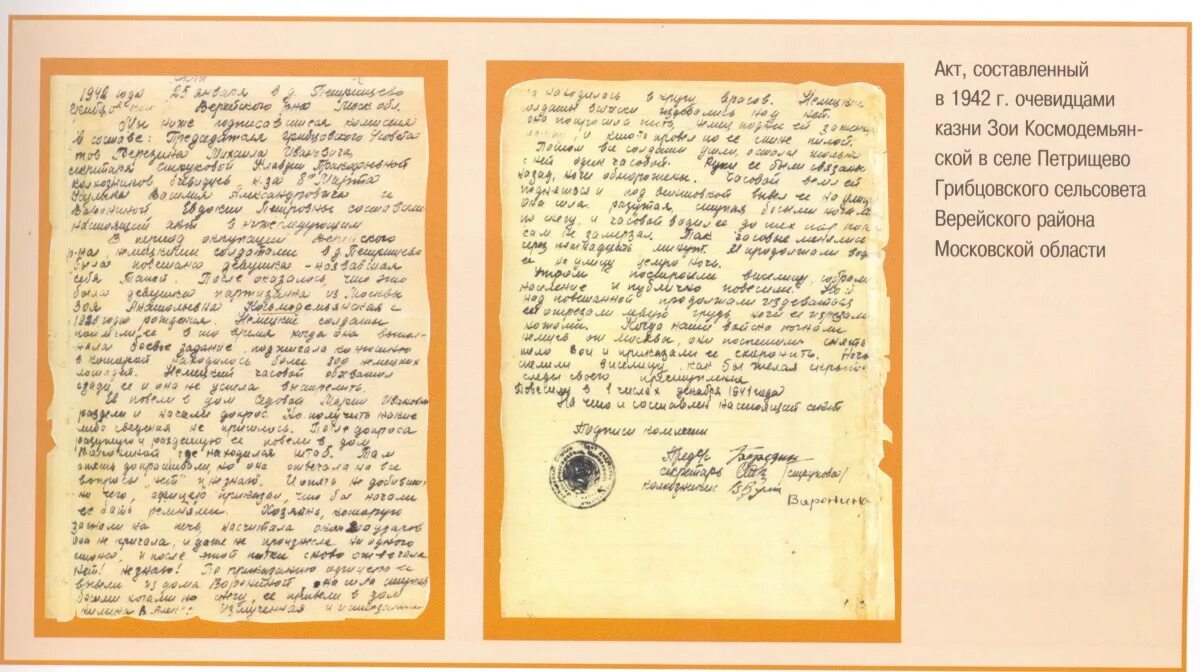 Акт
1942 года 25 января в д. Петрищево
Верейского р-на Моск обл.
Мы ниже подписавшиеся комиссия
в составе: Председателя грибцовского Совета
Березина Михаила Ивановича,
секретаря Струковой Клавдии Прокофьевны
колхозников очевидцев к-за 8е Марта
Кулика Василия Александровича и
Ворониной Евдокии Петровны составили
настоящий акт в нижеследующем
В период оккупации Верейского
р-на немецкими солдатами в д. Петрищево
была повешана девушка - назвавшая
себя Таней. После оказалось, что это
была девушка партизанка из Москвы
Зоя Анатольевна Космодемьянская с
года рождения. Немецкие солдаты
в то время когда она выпол-
няла боевое задание, поджигала конюшню
в которой находилось более 300 немецких
лошадей. Немецкий часовой обхватил
сзади, ее и она не успела выстрелить.
Её повели в дом Седовой Марии Ивановны
раздели и начали допрос. Но получить какие
либо сведения не пришлось. После допроса
разутую и раздетую её повели в дом
Ворониной где находился штаб. Там
опять допрашивали, но она отвечала на все
вопросы "нет" и не знаю. И опять не добившись
ни чего, офицер приказал, что бы начали
её бить ремнями. Хозяйка, которую
загнали на печь, насчитала около ударов
она не кричала, и даже не произнесла ни одного
и после этой пытки снова отвечала
нет! не знаю! По приказанию офицера её
вывели из дома Ворониной, она шла
босыми ногами по снегу, её привели в дом
Кулика В. Измученная и
она находилась в кругу врагов. Немецкие
солдаты всячески издевались над ней.
Она попросила пить, немец поднес ей зажжен
лампу, и кто-то провел по её спине пилой.
Потом все солдаты ушли, остался только
с ней один часовой. Руки её были связаны
назад, ноги обморожены. Часовой велел ей
подняться и под винтовкой вывел её на улицу
она шла разутая, босыми ногами
по снегу, и часовой водил её до тех пор пока
сам не замерзал. Так часовые менялись
через пятнадцать минут. И продолжали
её на улицу целую ночь.
Утром построили виселицу собрали
население и публично повесили. Но и
над повешанной продолжали издеваться
ей отрезали левую грудь, ноги ей изрезали
ножами. Когда наши войска погнали
немцев от Москвы, они поспешили снять
тело Зои и приказали её схоронить. Ночь
виселицу, как бы желая скрыть
следы своего преступления
Повесили в 1 числах декабря 1941 года
На что и составлен настоящий акт
Подписи комиссии
Предс. Березин
секретарь (Струкова)
колхозники
Воронина
Акт, составленный
в 1942 г. очевидцами
казни Зои Космодемьян-
ской в селе Петрищево
Грибцовского сельсовета
Верейского района
Московской области